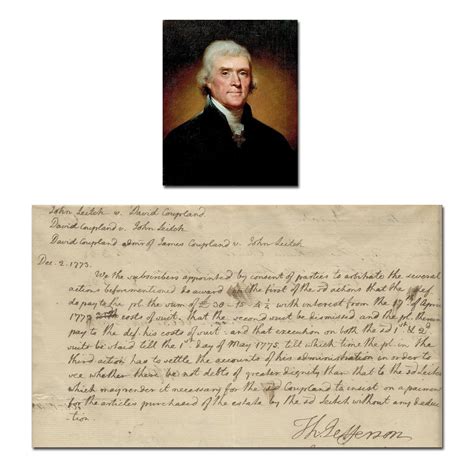 John Leitch v. David Coupland
David Coupland v. John Leitch
David Coupland admr of James Coupland v. John Leitch.
Dec. 2. 1773.
We the subscribers appointed by consent of parties to arbitrate the several
actions beforementioned do award in the first of the sd actions that the def.
do pay to the pl. the sum of £ 30 - 15 - 4½ with interest from the 17th of April
1772 with costs of suit, that the second suit be dismissed and the pl. therein
pay to the def. his costs of suit: and that execution on both the sd 1st & 2d
suits be staid till the 1st day of May 1775, till which time the pl. in the
third action has to settle the accounts of his administration in order to
see whether there be not debts of greater dignity than that to the sd Leitch
which may render it necessary for the sd Coupland to insist on a paiment
for the articles purchased of the estate by the sd Leitch without any deduc
-tion.
Th: Jefferson